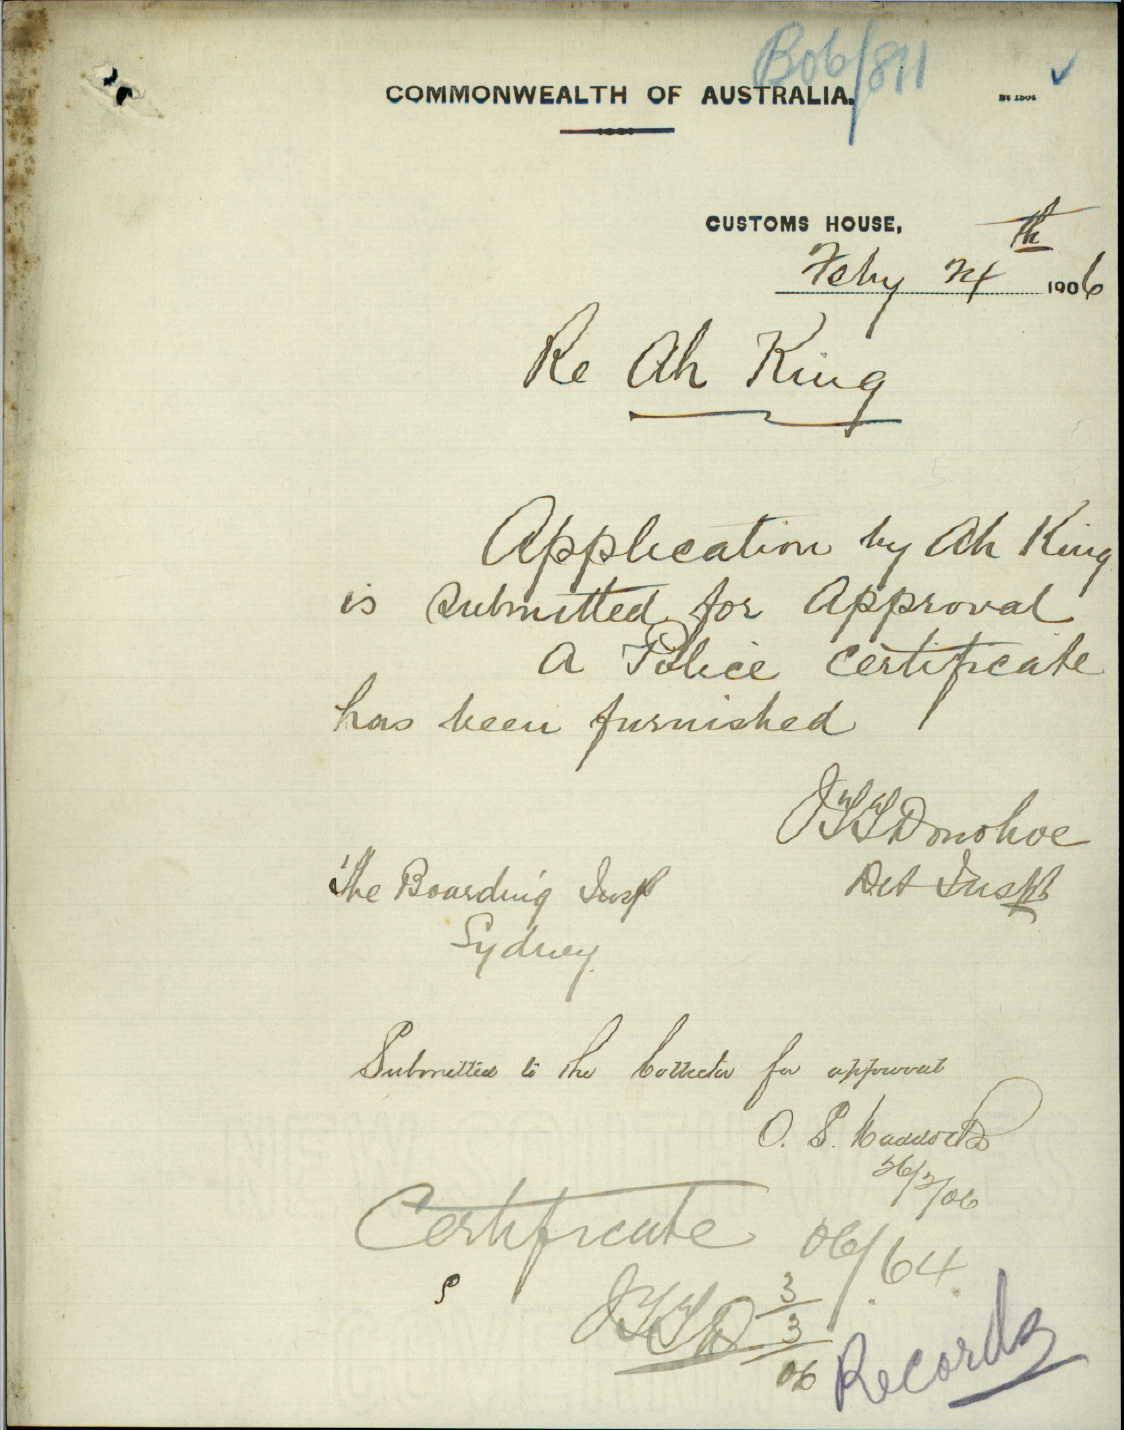 B06/811
COMMONWEALTH OF AUSTRALIA.
CUSTOMS HOUSE,
Feby 24th 1906
Re Ah King
Application by Ah King
is submitted for Approval
A Police Certificate
has been furnished
J T T Donohoe
Det Inspt
The Boarding Insp
Sydney.
Submitted to the Collector for approval
O. S. Maddocks
26/2/06
Certificate 06/64
J T T D 3/3/06
Records